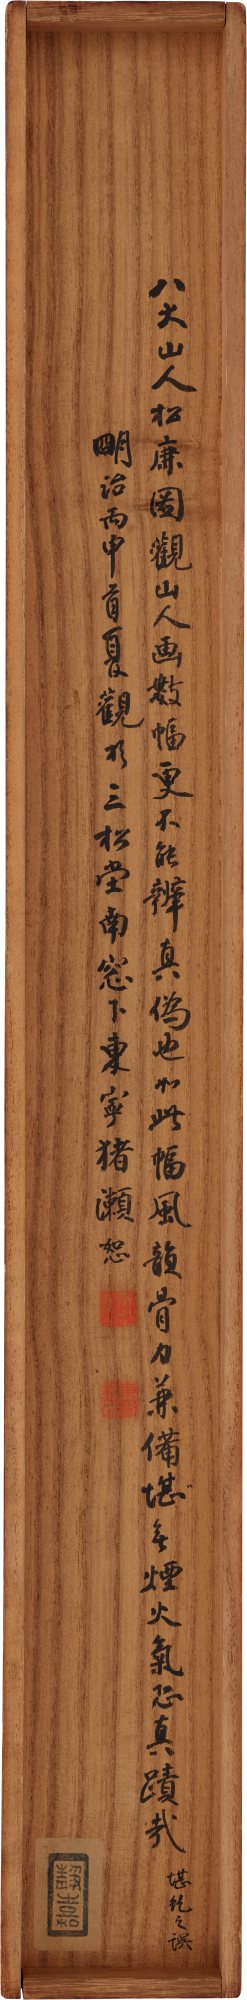 八大山人松鹿圖觀山人画數幅更不能辨真偽也如此幅風韻骨力兼備堪無煙火氣恐真蹟哉
堪純之誤
明治丙申首夏觀於三松堂南窓下東寧猪瀬恕